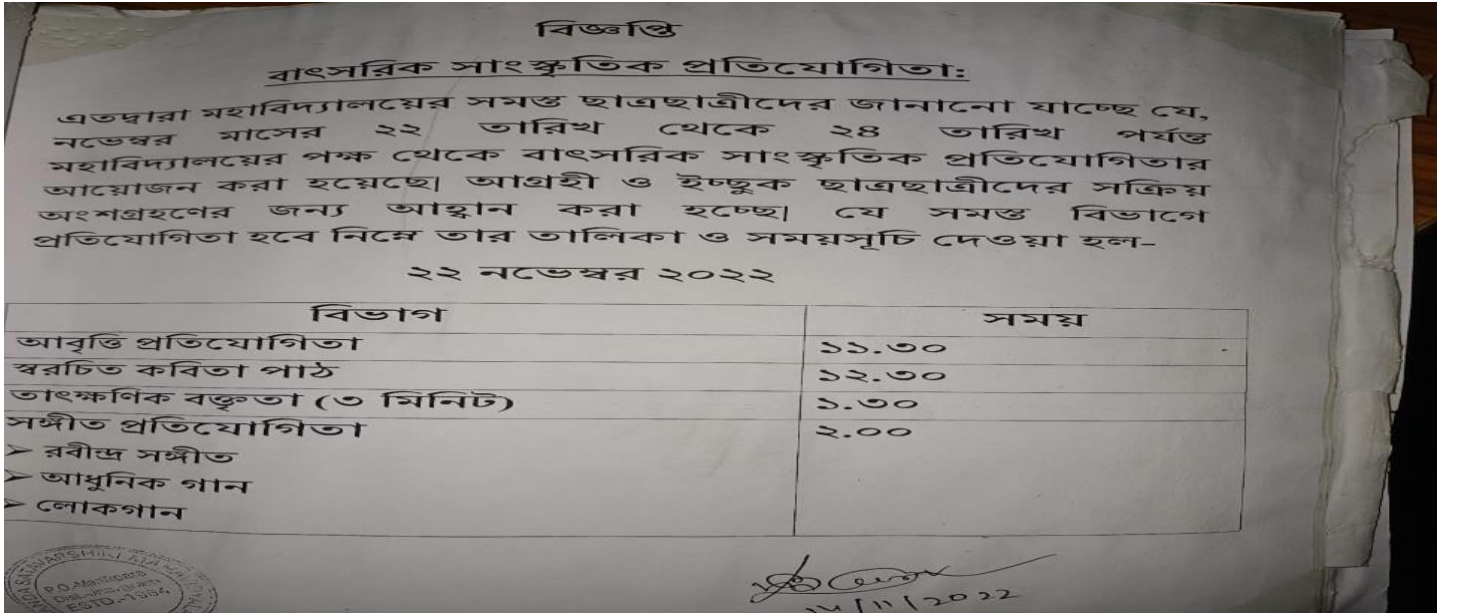 বিজ্ঞপ্তি
বাৎসরিক সাংস্কৃতিক প্রতিযোগিতা:
এতদ্বারা মহাবিদ্যালয়ের সমস্ত ছাত্রছাত্রীদের জানানো যাচ্ছে যে,
নভেম্বর মাসের ২২ তারিখ থেকে ২৪ তারিখ পর্যন্ত
মহাবিদ্যালয়ের পক্ষ থেকে বাৎসরিক সাংস্কৃতিক প্রতিযোগিতার
আয়োজন করা হয়েছে| আগ্রহী ও ইচ্ছুক ছাত্রছাত্রীদের সক্রিয়
অংশগ্রহণের জন্য আহ্বান করা হচ্ছে| যে সমস্ত বিভাগে
প্রতিযোগিতা হবে নিম্নে তার তালিকা ও সময়সূচি দেওয়া হল-
২২ নভেম্বর ২০২২
বিভাগ সময়
আবৃত্তি প্রতিযোগিতা ১১.৩০
স্বরচিত কবিতা পাঠ ১২.৩০
তাৎক্ষণিক বক্তৃতা (৩ মিনিট) ১.৩০
সঙ্গীত প্রতিযোগিতা ২.০০
➢ রবীন্দ্র সঙ্গীত
➢ আধুনিক গান
➢ লোকগান
P.O.-Manikpara
ESTD.-1964
/11/2022